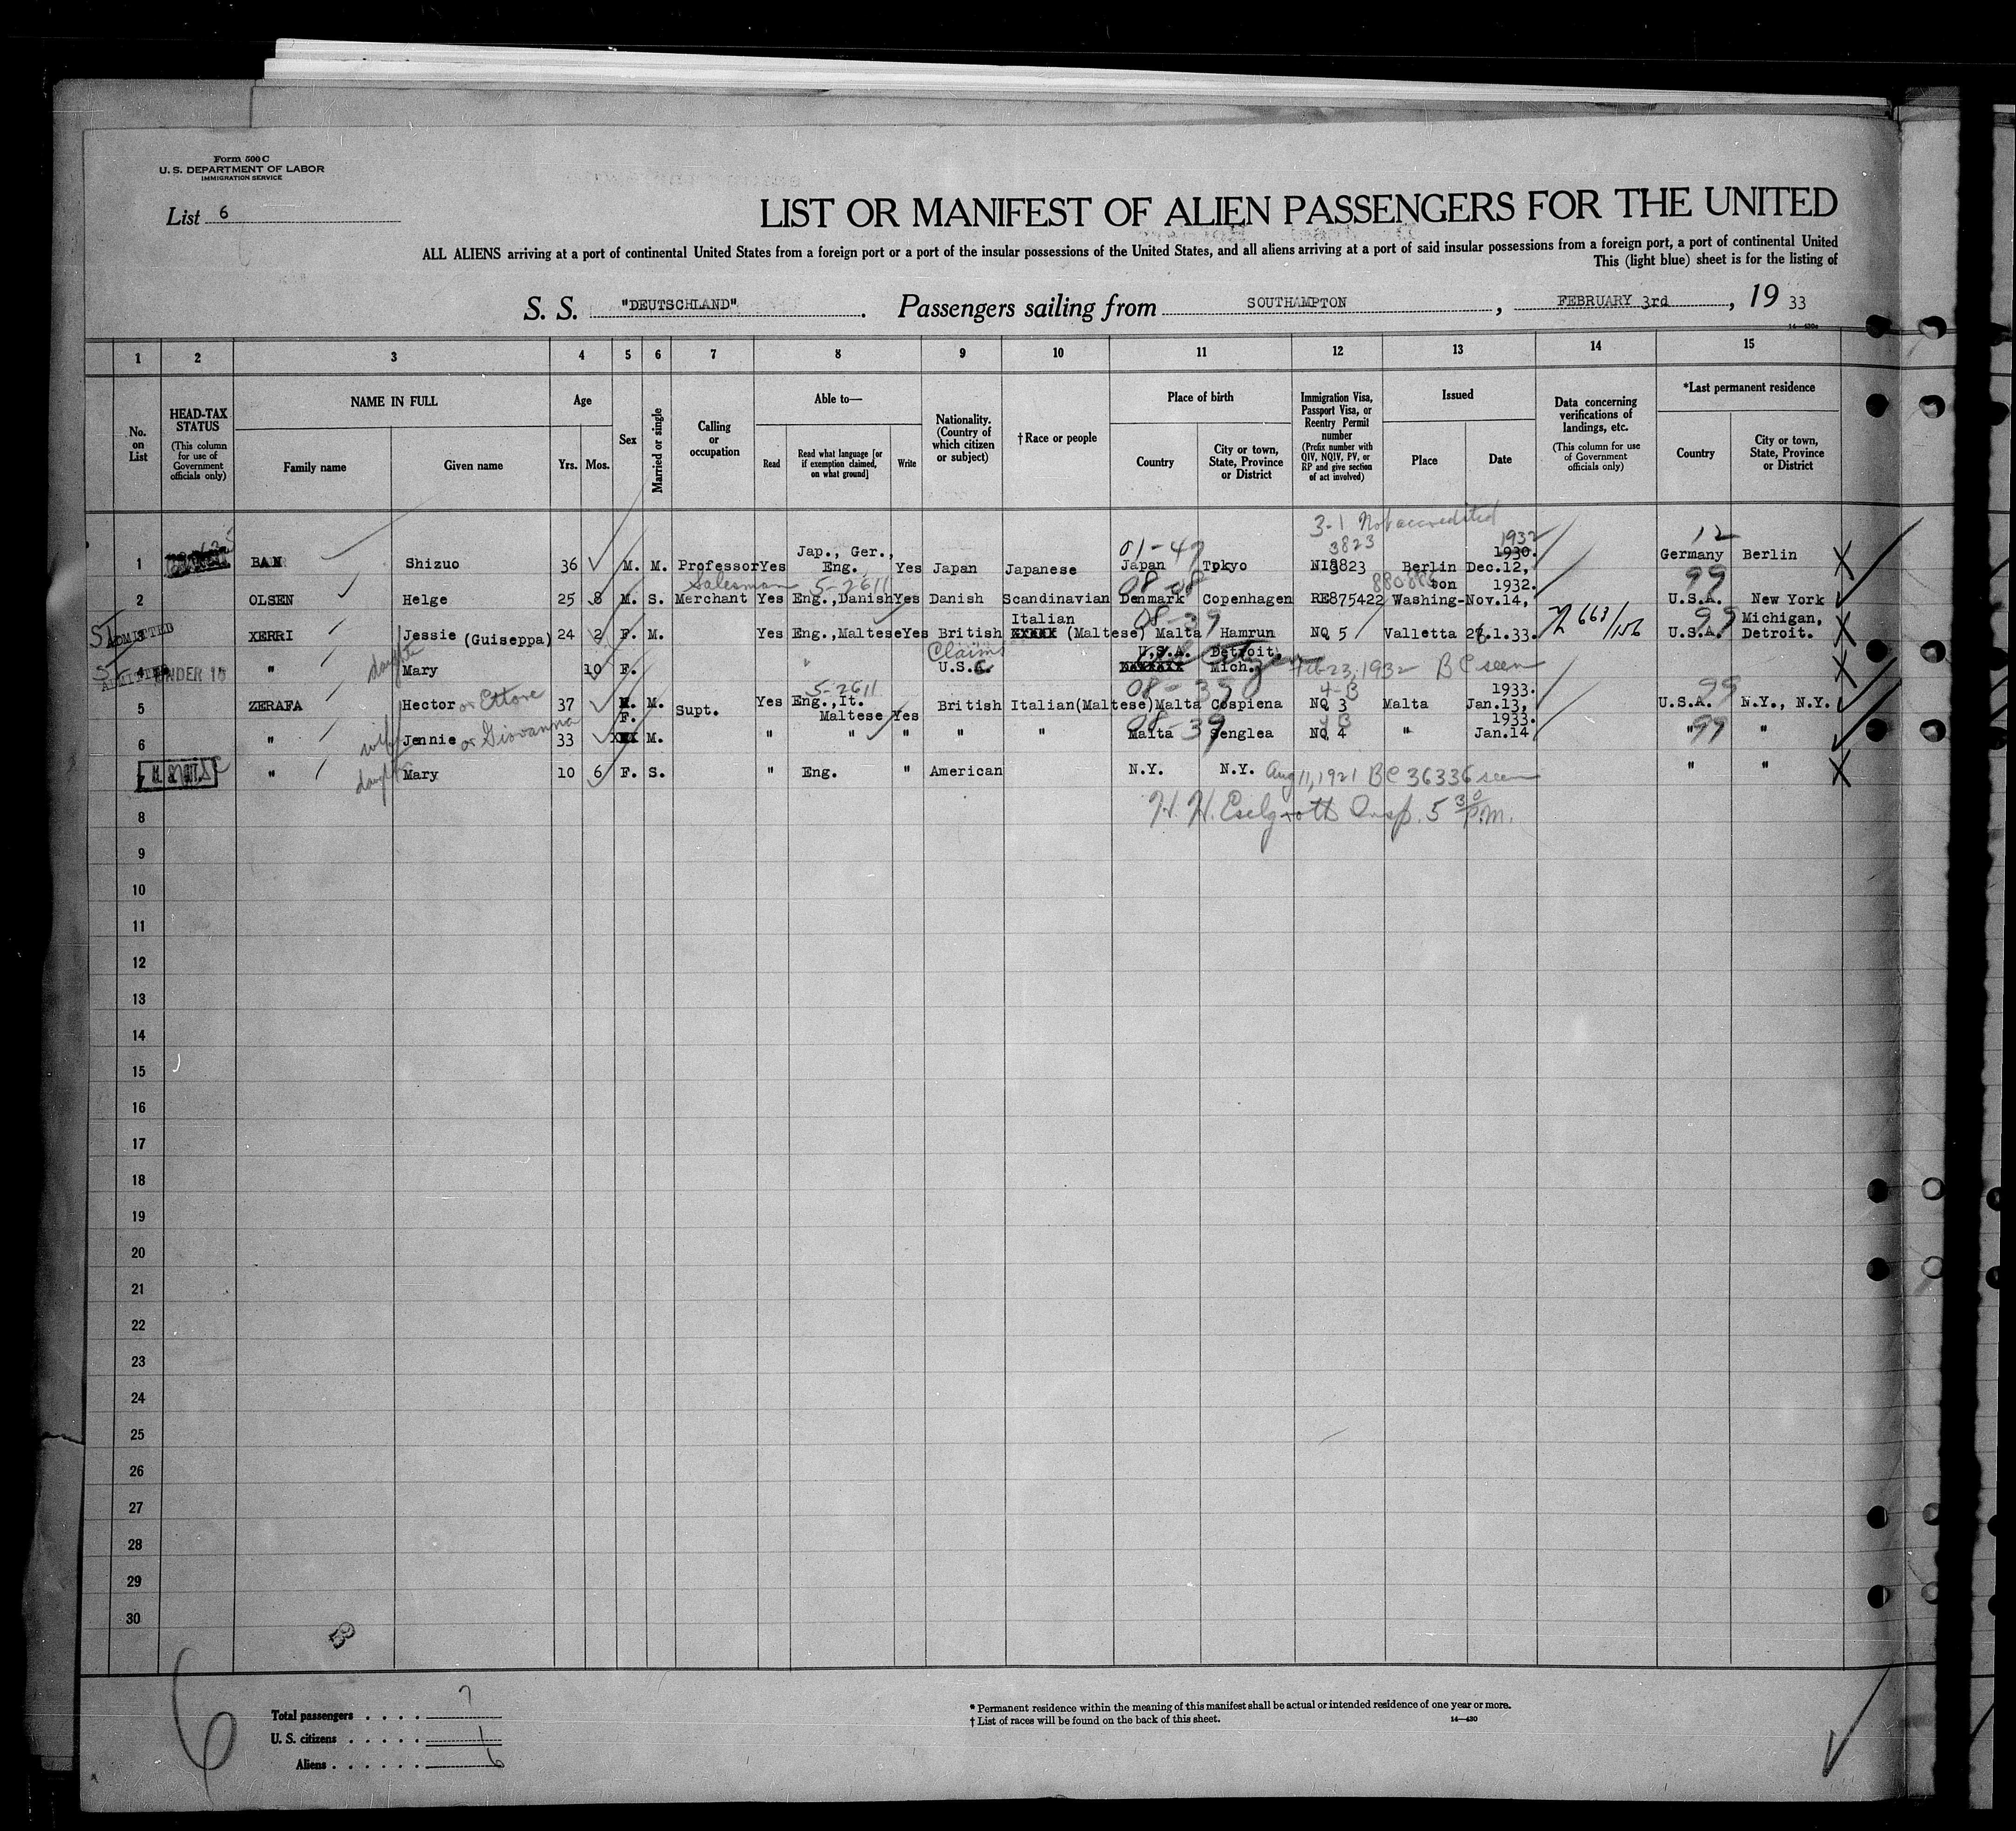 Form 500 C
U. S. DEPARTMENT OF LABOR
IMMIGRATION SERVICE
List 6
LIST OR MANIFEST OF ALIEN PASSENGERS FOR THE UNITED
ALL ALIENS arriving at a port of continental United States from a foreign port or a port of the insular possessions of the United States, and all aliens arriving at a port of said insular possessions from a foreign port, a port of continental United
This (light blue) sheet is for the listing of
S. S. "DEUTSCHLAND". Passengers sailing from SOUTHAMPTON, FEBRUARY 3rd, 19 33
1 2 3 4 5 6 7 8 9 10 11 12 13 14 15
No. on List
HEAD-TAX STATUS (This column for use of Government officials only)
NAME IN FULL
Family name Given name
Age
Yrs. Mos.
Sex
Married or single
Calling or occupation
Able to—
Read
Read what language [or if exemption claimed, on what ground]
Write
Nationality. (Country of which citizen or subject)
†Race or people
Place of birth
Country
City or town, State, Province or District
Immigration Visa, Passport Visa, or Reentry Permit number (Prefix number with QIV, NQIV, PV, or RP and give section of act involved)
Issued
Place Date
Data concerning verifications of landings, etc. (This column for use of Government officials only)
*Last permanent residence
Country
City or town, State, Province or District
3-1 Not accredited
01-47 3823 1932 12
1 BAN Shizuo 36 M. M. Professor Yes Jap., Ger., Eng. Yes Japan Japanese Japan Tokyo 3823 Berlin Dec.12, 1930. Germany Berlin
Salesman 5-2611 08-08 99
2 OLSEN Helge 25 8 M. S. Merchant Yes Eng.,Danish Yes Danish Scandinavian Denmark Copenhagen RE875422 Washing-ton Nov.14, 1932. U.S.A. New York
08-39 99
ADMITTED 3 XERRI Jessie (Guiseppa) 24 2 F. M. Yes Eng.,Maltese Yes British Italian (Maltese) Malta Hamrun NQ 5 Valletta 26.1.33. 663/156 U.S.A. Michigan, Detroit.
ADMITTED 4 UNDER 16 " daughter Mary 10 F. " Claims U.S.C. U.S.A. Detroit, Mich. Feb 23, 1932 BC seen
5-2611 08-39 4-B 99
5 ZERAFA Hector or Ettore 37 M. M. Supt. Yes Eng.,It. Maltese Yes British Italian(Maltese) Malta Cospiena NQ 3 Malta Jan.13, 1933. U.S.A. N.Y., N.Y.
08-39 4B 99
6 " wife Jennie or Giovanna 33 F. M. " " " " " Malta Senglea NQ 4 " Jan.14 1933. " "
7 " daughter Mary 10 6 F. S. " Eng. " American N.Y. N.Y. Aug 11, 1921 BC 36336 seen " "
8 H. H. Eselgroth Insp. 5 30 P.M.
9
10
11
12
13
14
15
16
17
18
19
20
21
22
23
24
25
26
27
28
29
30
6
Total passengers . . . . 7
U. S. citizens . . . . . 1
Aliens . . . . . . 6
* Permanent residence within the meaning of this manifest shall be actual or intended residence of one year or more.
† List of races will be found on the back of this sheet.
14—430